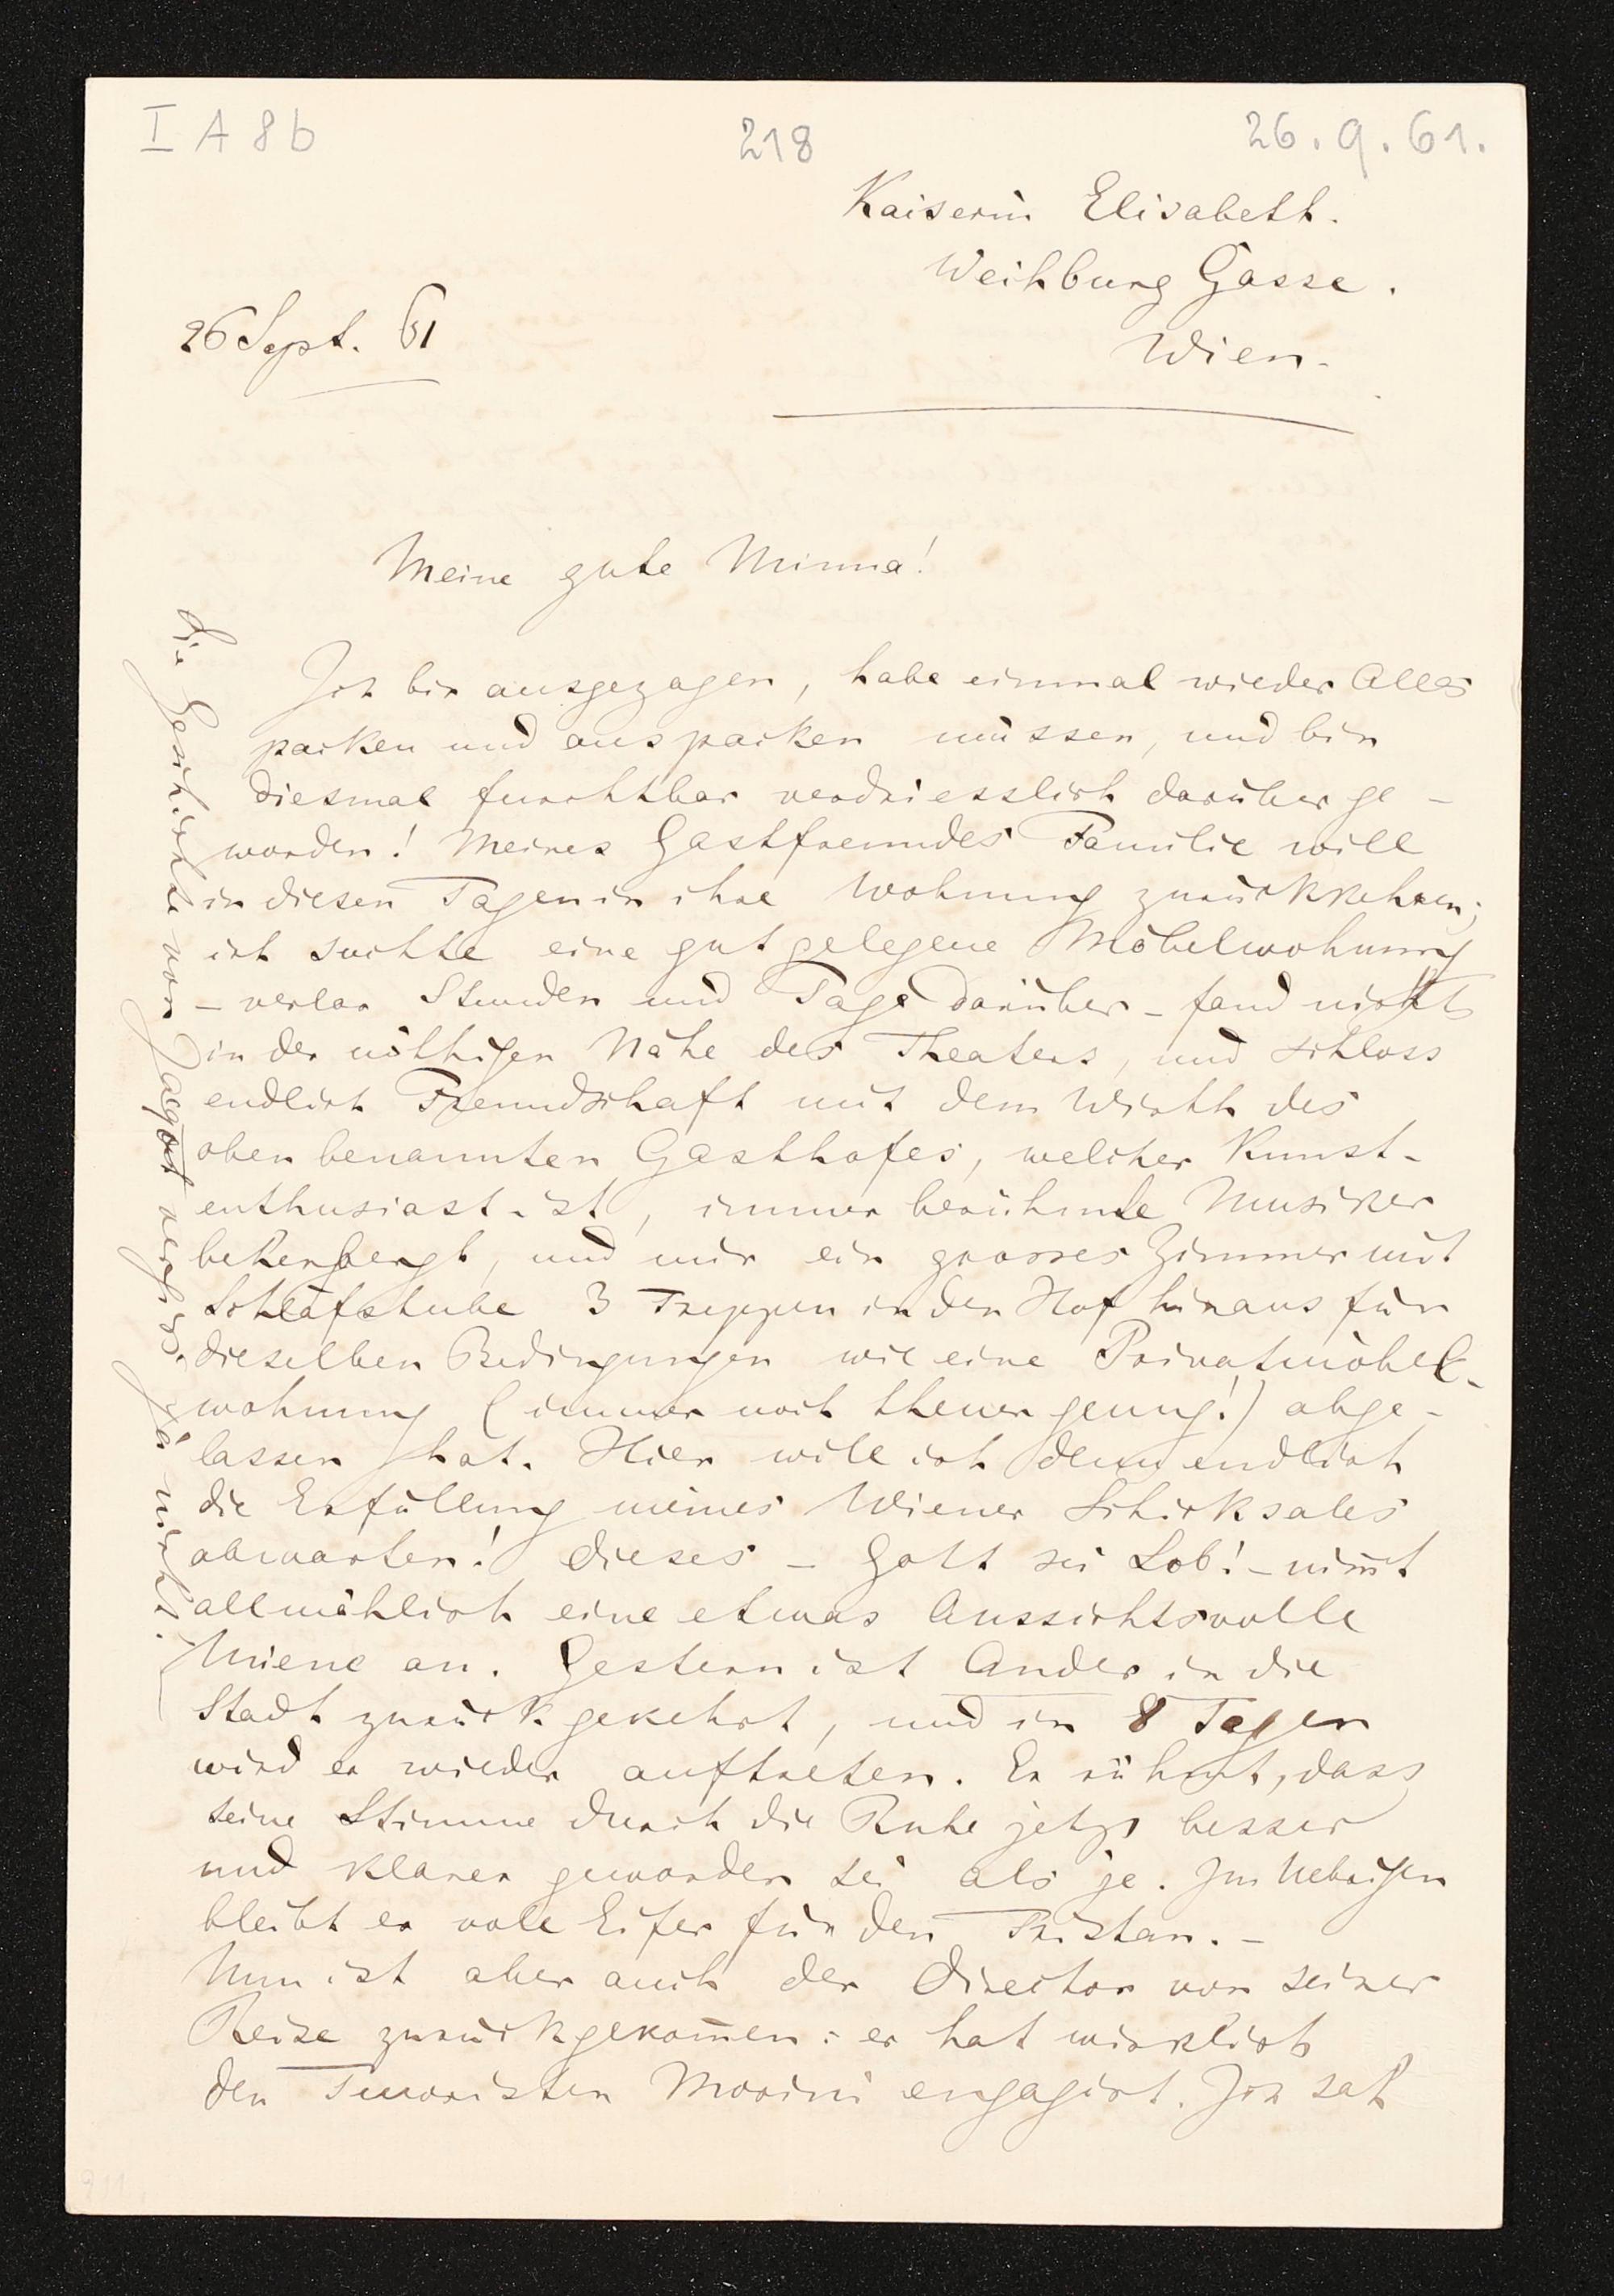 I A 8 b
218
26. 9. 61.
Kaiserin Elisabeth.
Weihburg Gasse.
Wien.
26 Sept. 61
Meine gute Minna!
Ich bin ausgezogen, habe einmal wieder Alles
packen und auspacken müssen, und bin
diesmal furchtbar verdriesslich darüber ge-
worden! Meines Gastfreundes Familie will
in diesen Tagen in ihre Wohnung zurückkehren;
ich suchte eine gut gelegene Möbelwohnung
– verlor Stunden und Tage darüber – fand nichts
in der nöthigen Nähe des Theaters, und schloss
endlich Freundschaft mit dem Wirth des
oben benannten Gasthofes, welcher Kunst-
enthusiast ist, immer berühmte Musiker
beherbergt, und mir ein grosses Zimmer mit
Schlafstube 3 Treppen in den Hof hinaus für
dieselben Bedingungen wie eine Privatmöbel-
wohnung (immer noch theuer genug!) abge-
lassen hat. Hier will ich denn endlich
die Erfüllung meines Wiener Schicksales
abwarten! Dieses – Gott sei Lob! – nim̅t
allmählich eine etwas Aussichtsvolle
Miene an. Gestern ist Ander in die
Stadt zurückgekehrt, und in 8 Tagen
wird er wieder auftreten. Er rühmt, dass
seine Stimme durch die Ruhe jetzt besser
und klarer geworden sei als je. Im Uebrigen
bleibt er voll Eifer für den Tristan. –
Nun ist aber auch der Director von seiner
Reise zurückgekom̅en: er hat wirklich
den Tenoristen Morini engagirt. Ich sah
die Geschichte von Jacquot vergiss ja nicht!